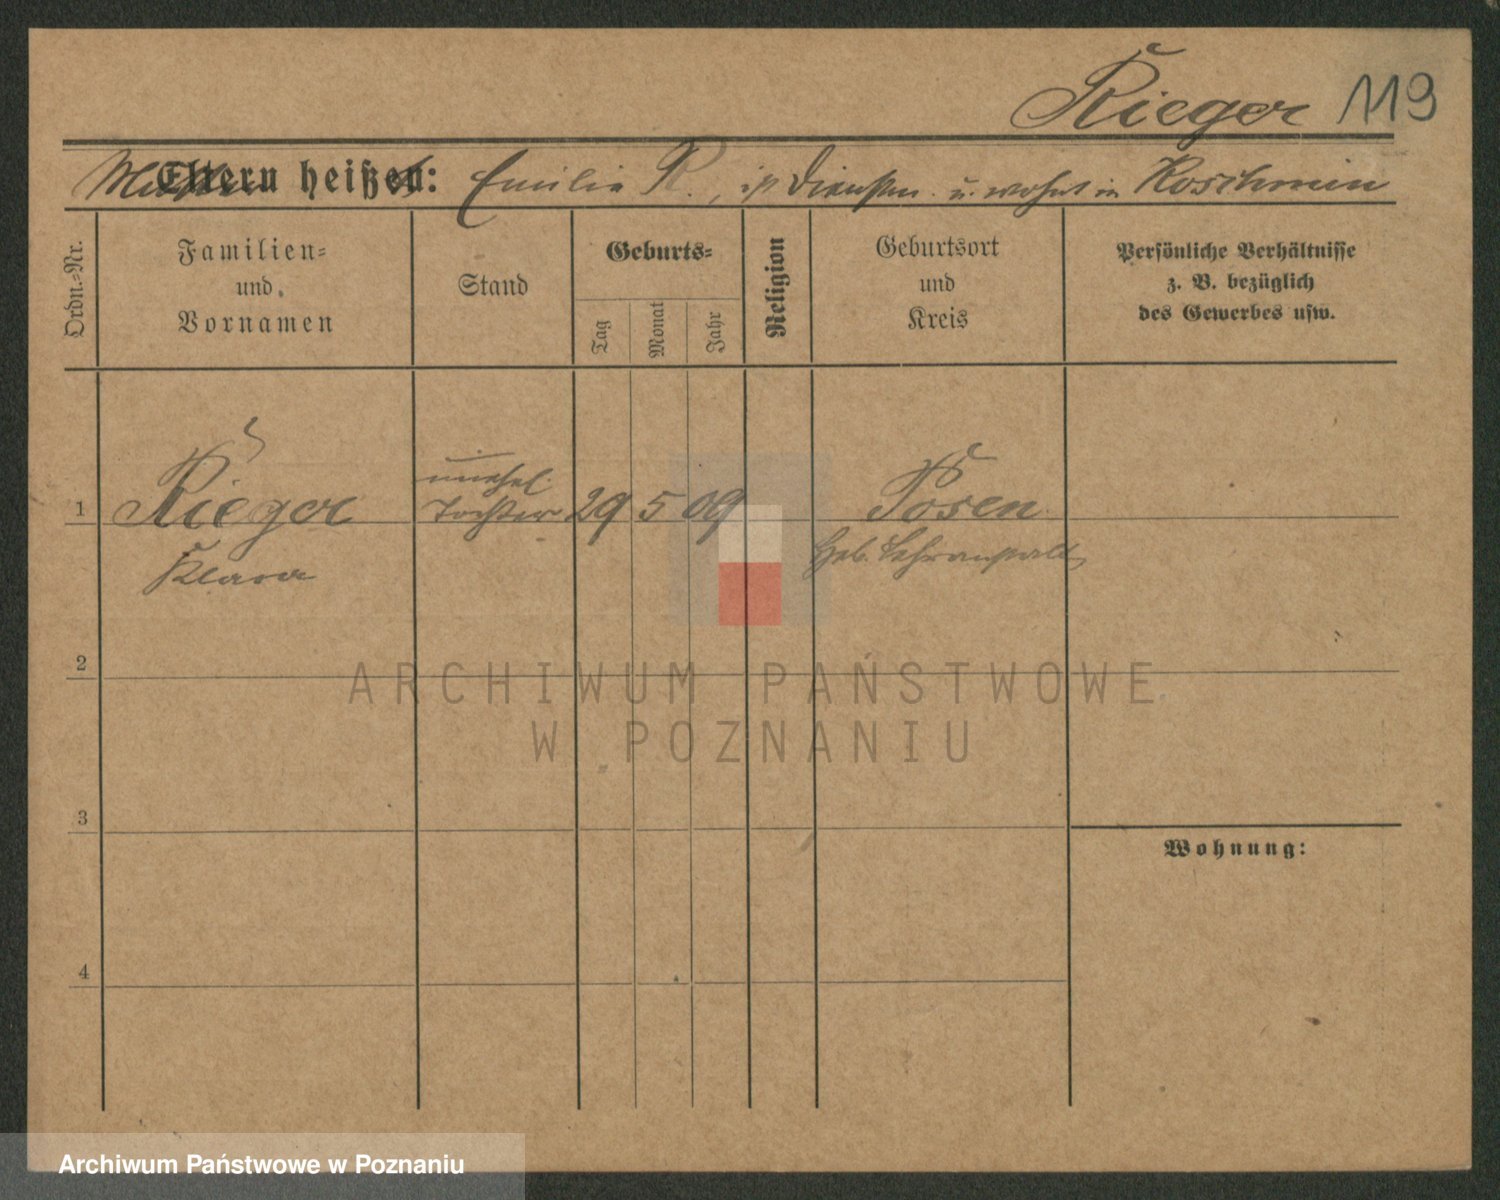 Rieger 119
Mutter heißt: Emilie R., ist Dienstm. u. wohnt in Koschmin
Eltern heißen:
Ordn.-Nr.
Familien-
und
Vornamen
Stand
Geburts-
Tag
Monat
Jahr
Religion
Geburtsort
und
Kreis
Persönliche Verhältnisse
z. B. bezüglich
des Gewerbes usw.
1
Rieger
Klara
unehel.
Tochter
29 5 09
Posen
Heb. Lehranstalt
2
3
4
Wohnung:
ARCHIWUM PAŃSTWOWE
W POZNANIU
Archiwum Państwowe w Poznaniu